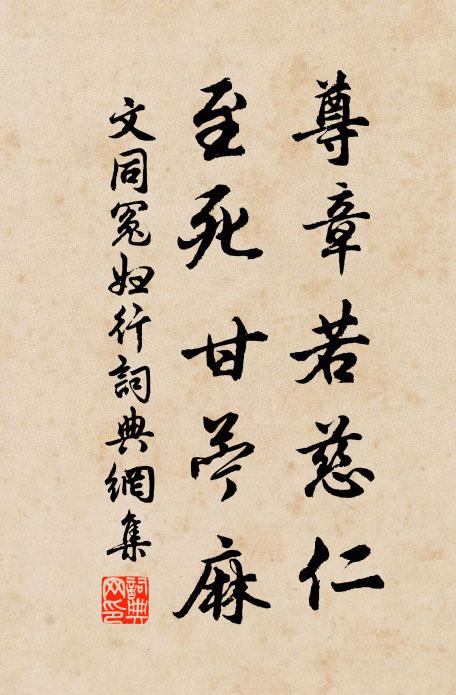 尊章若慈仁
至死甘苧麻
文同冤妇行詞典網集
詞典网印